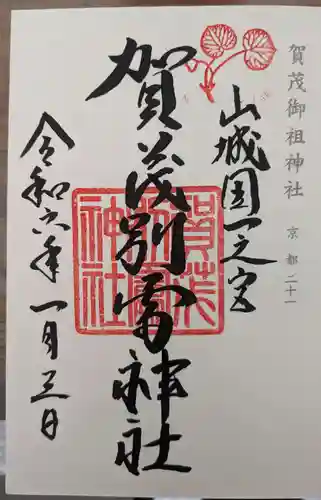 賀茂御祖神社 京都二十一
山城国一之宮
賀茂別雷神社
令和六年一月三日
賀茂
別雷
神社